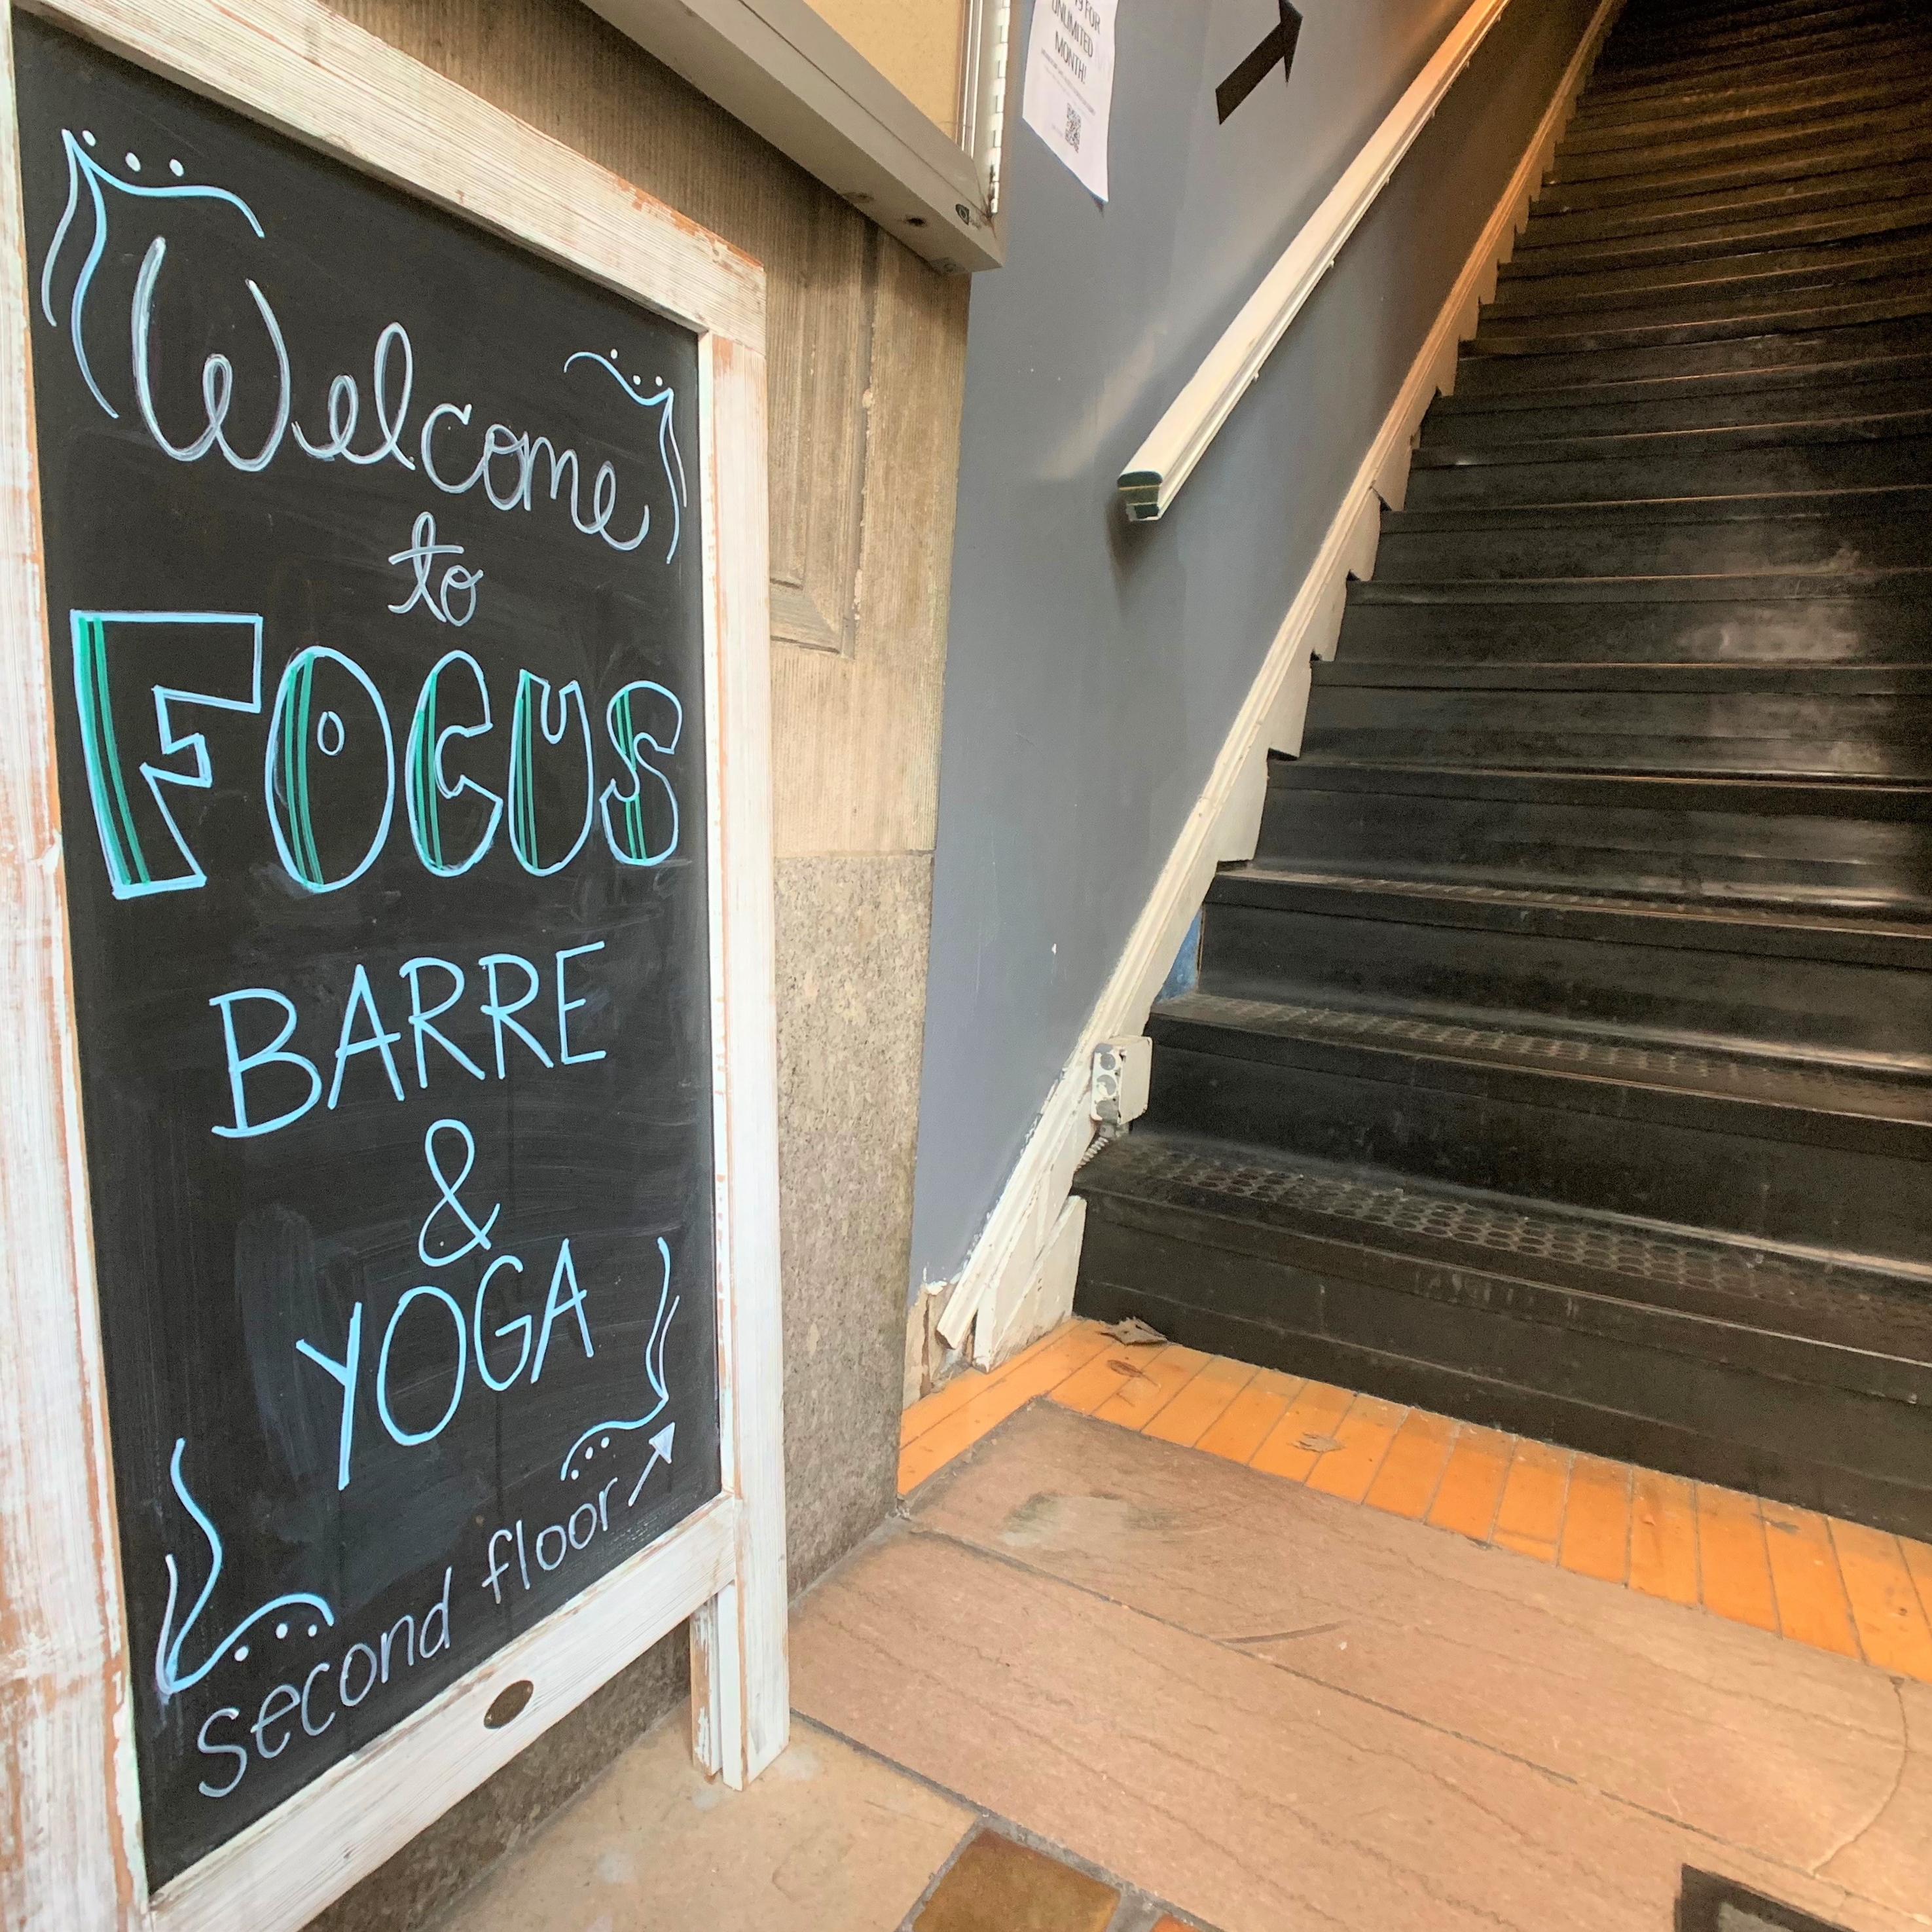 Welcome
to
FOCUS
BARRE
&
YOGA
second floor
FOR
UNLIMITED
MONTH!